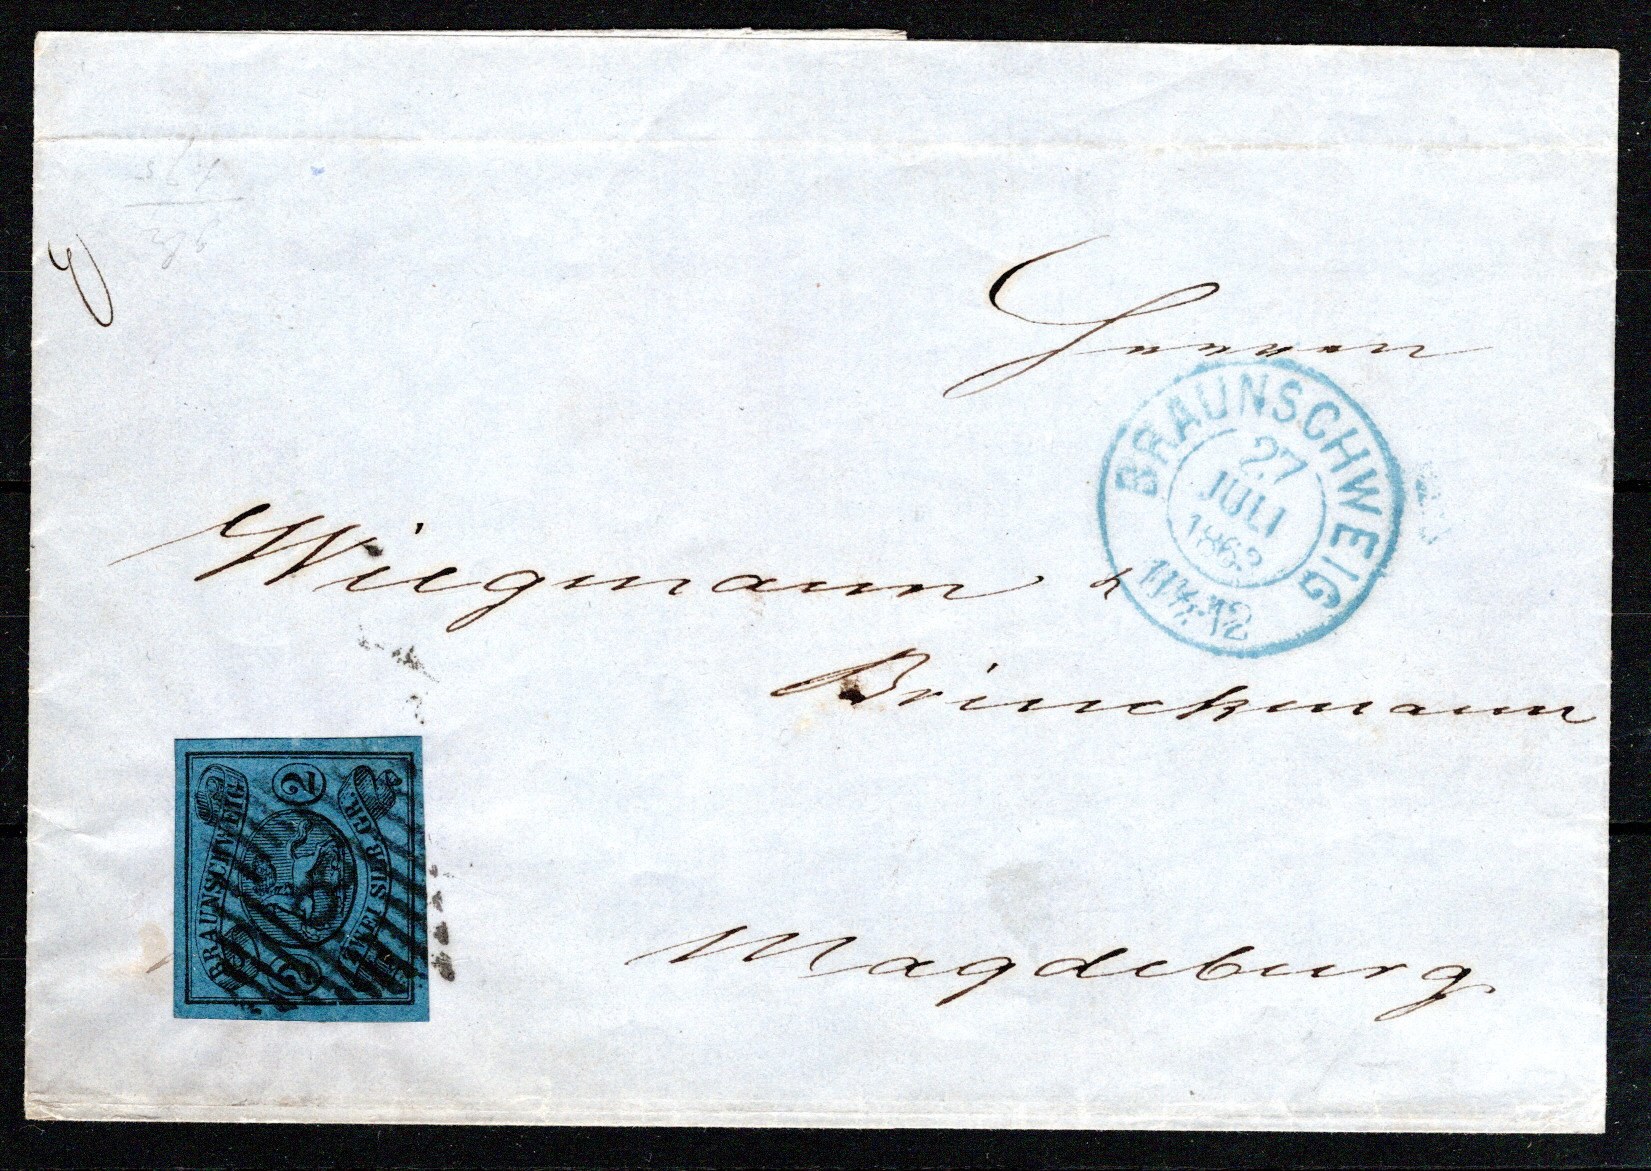 Herren
BRAUNSCHWEIG
27
JULI
1863
11½-12
Wiegmann &
Brinckmann
Magdeburg
BRAUNSCHWEIG
2
2
SILBR GR.